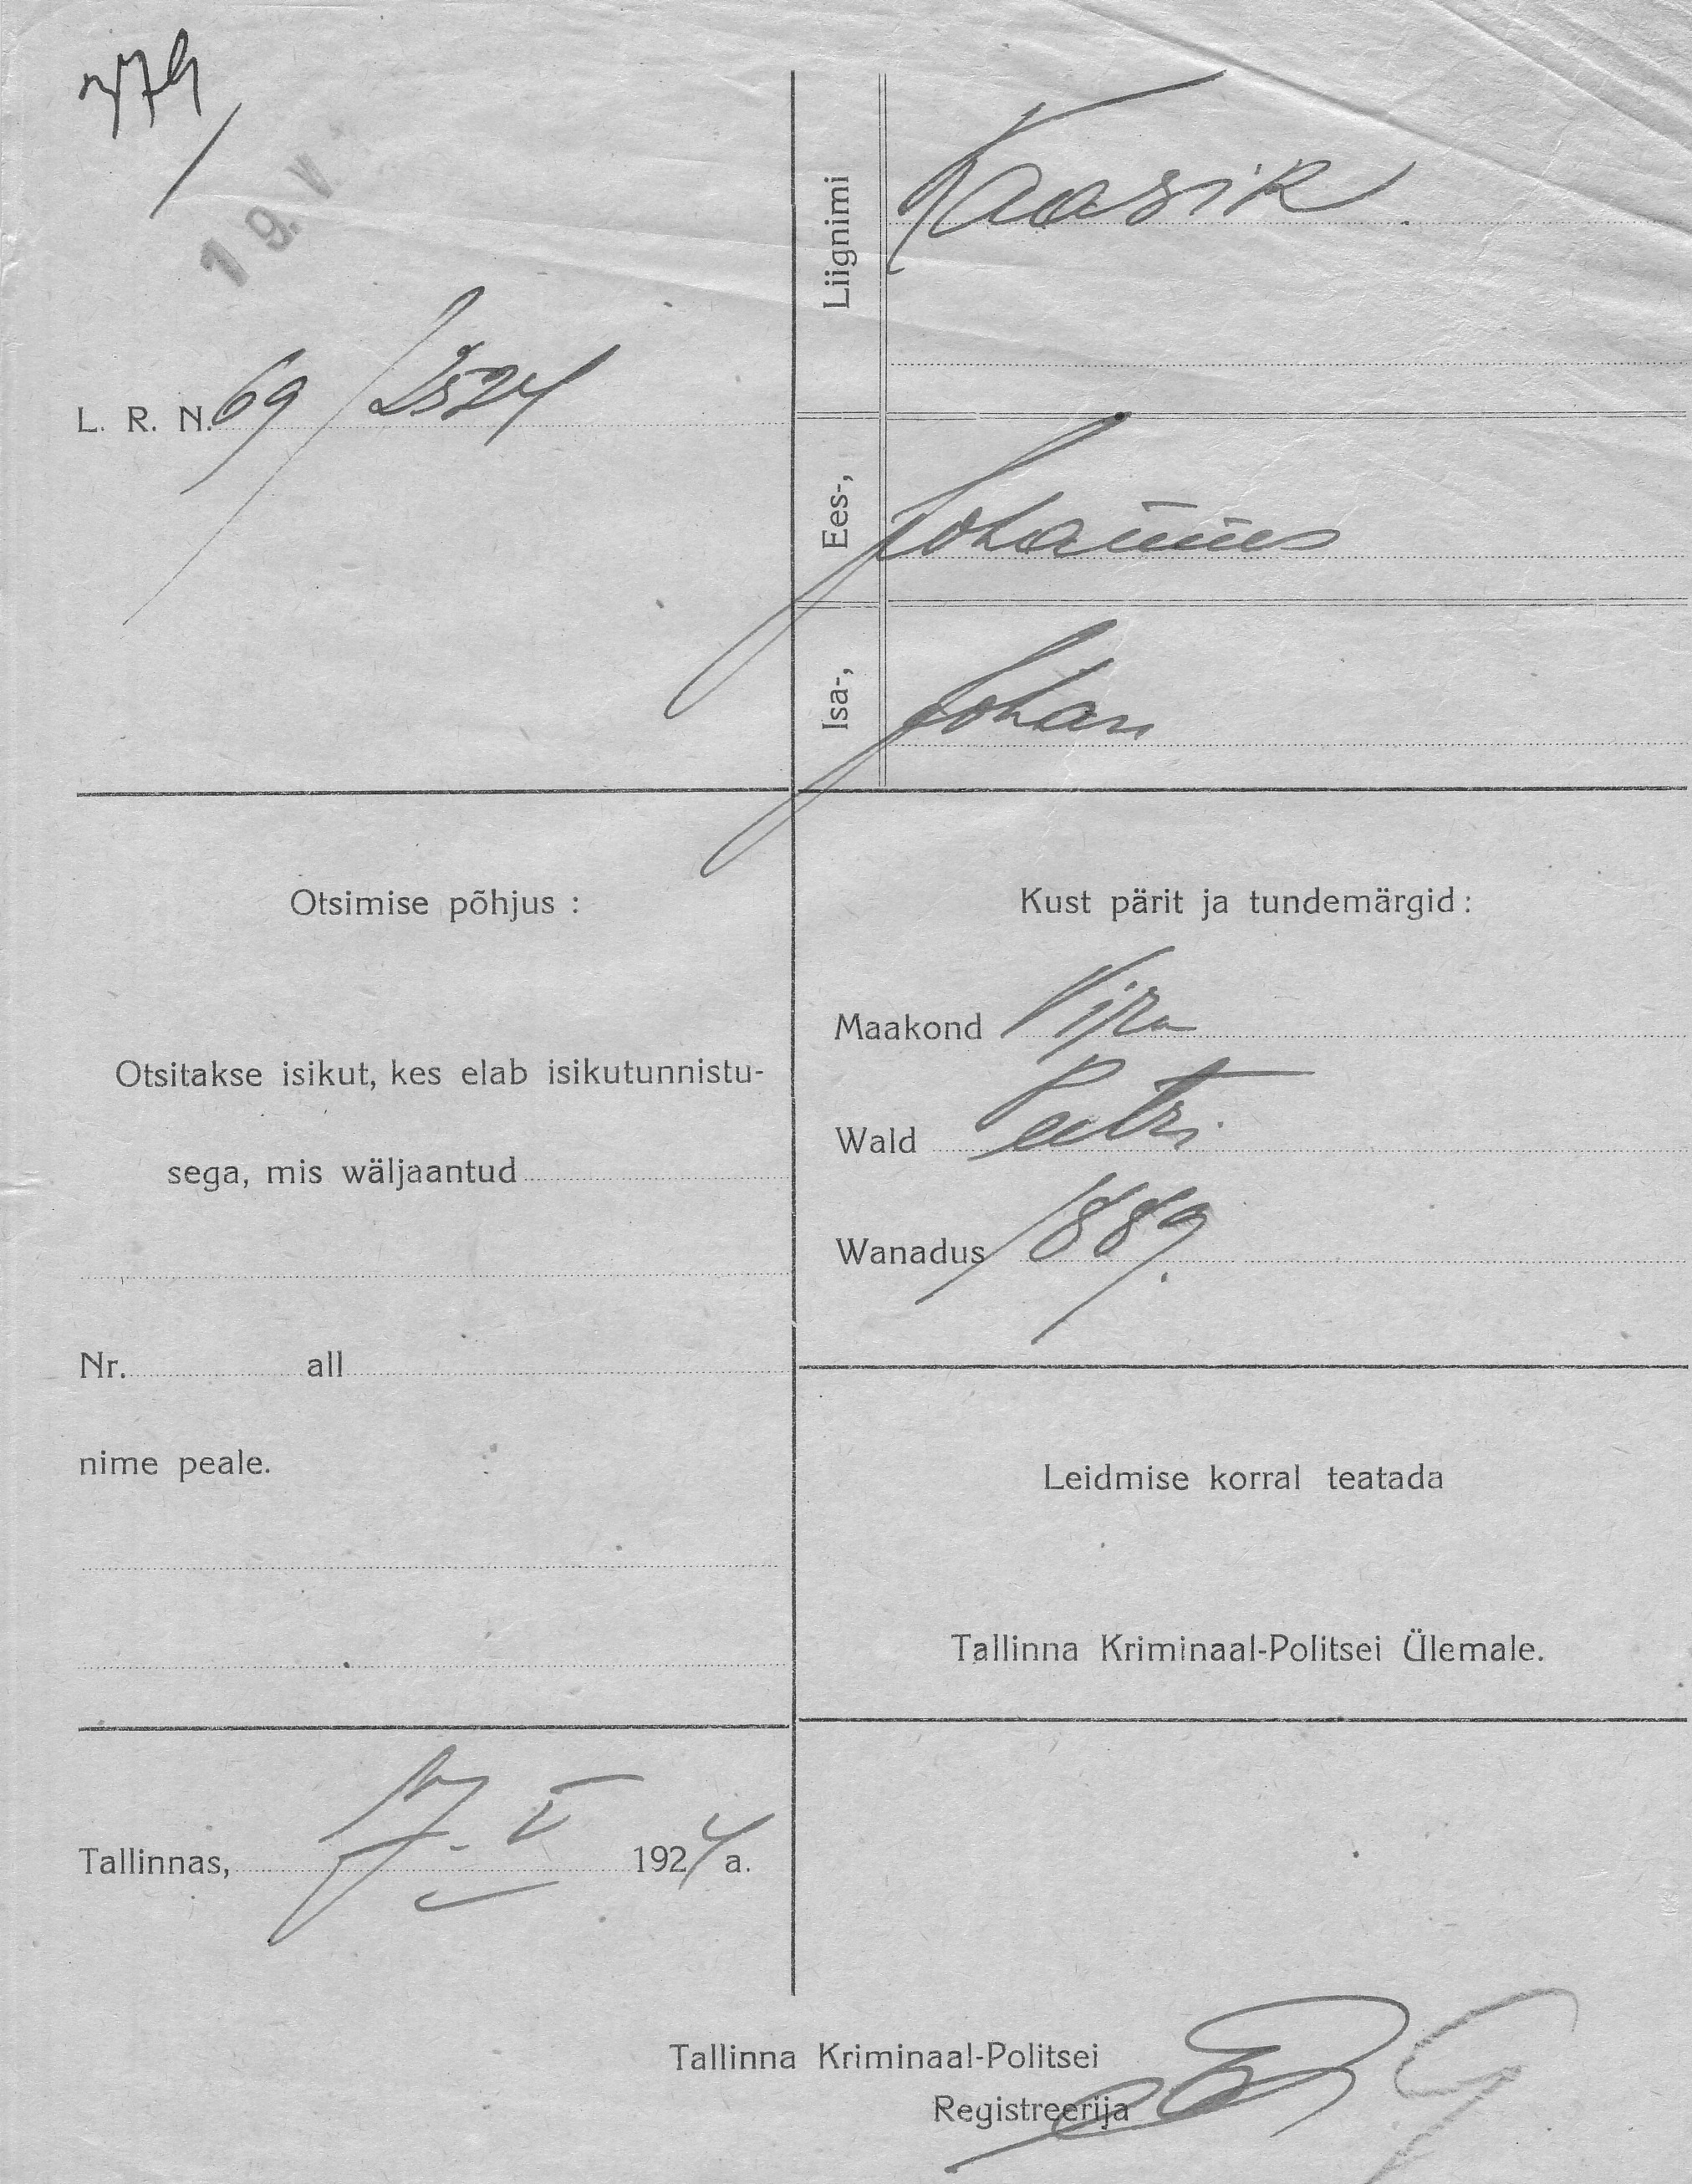 379
19. V
L. R. N. 69/2524
Liignimi Kaasik.
Ees-, Johannes
Isa-, Johan
Otsimise põhjus :
Otsitakse isikut, kes elab isikutunnistu-
sega, mis wäljaantud
Nr. all
nime peale.
Kust pärit ja tundemärgid :
Maakond
Wald Peetri
Wanadus 1889.
Leidmise korral teatada
Tallinna Kriminaal-Politsei Ülemale.
Tallinnas, 17. V 1924 a.
Tallinna Kriminaal-Politsei
Registreerija